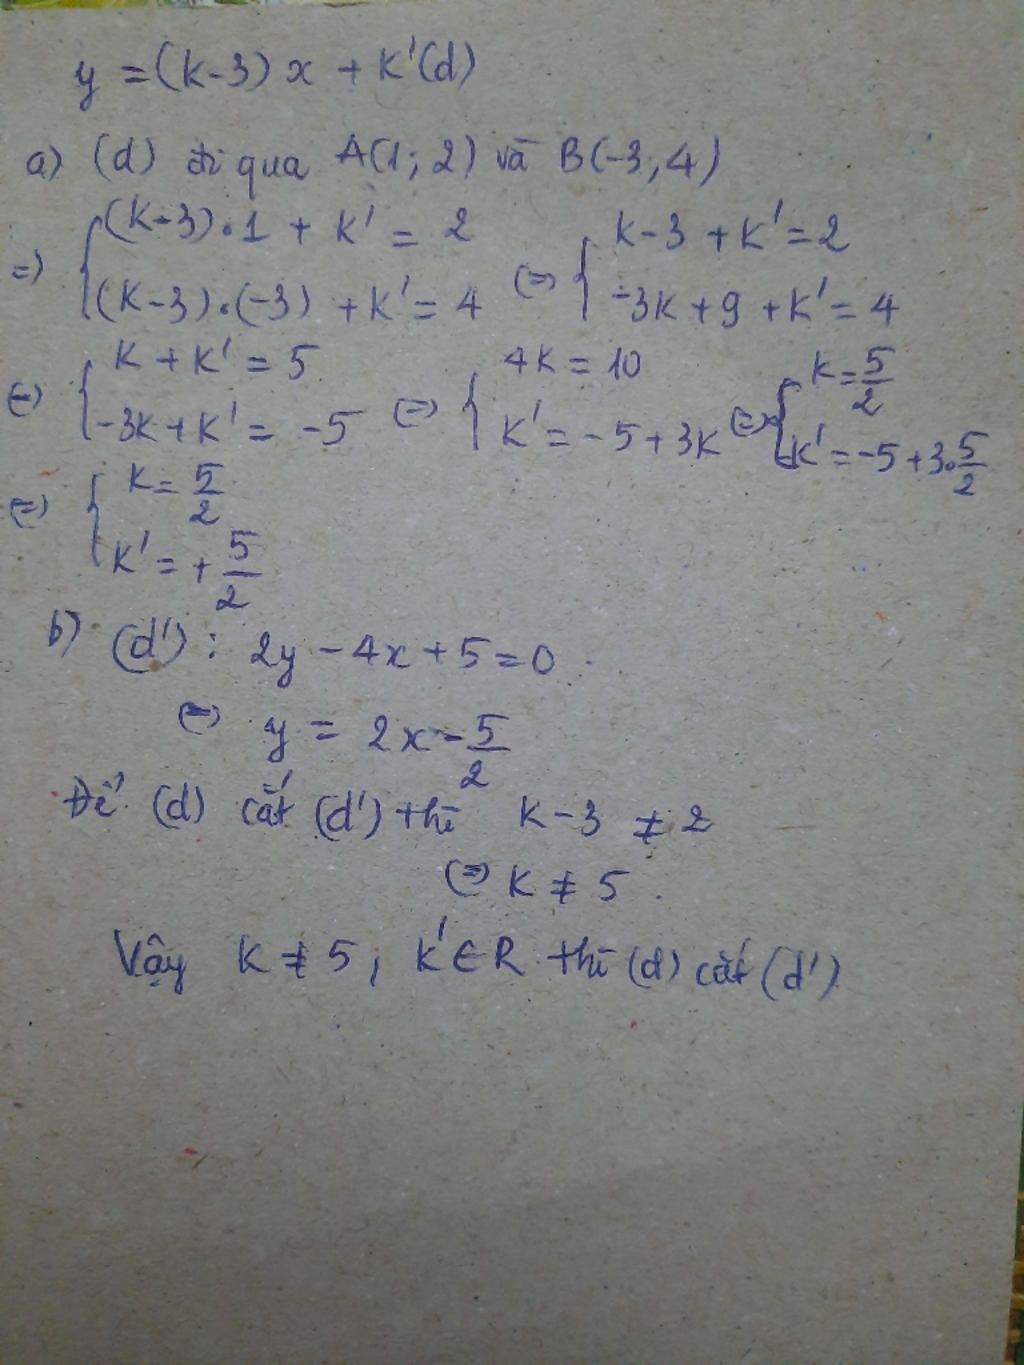 y = (k-3) x + k'(d)
a) (d) đi qua A(1; 2) và B(-3, 4)
=) { (k-3).1 + k' = 2 (=) { k-3 + k' = 2
(k-3).(-3) + k' = 4 -3k + 9 + k' = 4
(=) { k + k' = 5 (=) { 4k = 10 (=) { k = 5/2
-3k + k' = -5 k' = -5 + 3k k' = -5 + 3.5/2
(=) { k = 5/2
k' = + 5/2
b) (d') : 2y - 4x + 5 = 0.
(=) y = 2x - 5/2
Để (d) cắt (d') thì k-3 ≠ 2
(=) k ≠ 5.
Vậy k ≠ 5, k' ∈ R thì (d) cắt (d')